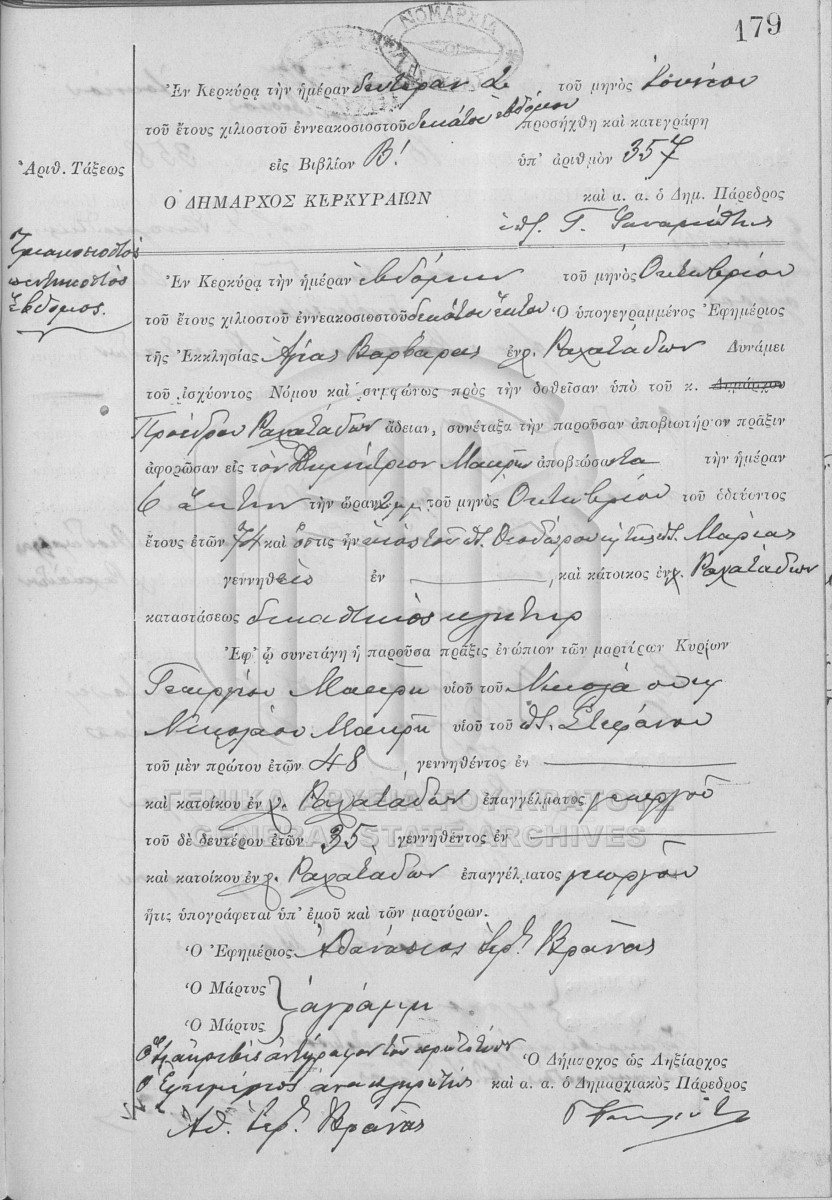 179
ΝΟΜΑΡΧΙΑ
Ἐν Κερκύρᾳ τὴν ἡμέραν δευτέραν 2 τοῦ μηνὸς Ἰουνίου
τοῦ ἔτους χιλιοστοῦ ἐννεακοσιοστοῦ δεκάτου ἑβδόμου προσήχθη καὶ κατεγράφη
Ἀριθ. Τάξεως
εἰς Βιβλίον Β! ὑπ' ἀριθμὸν 357
Ο ΔΗΜΑΡΧΟΣ ΚΕΡΚΥΡΑΙΩΝ καὶ α. α. ὁ Δημ. Πάρεδρος
Τριακοσιοστὸς
πεντηκοστὸς
ἕβδομος.
Ἐν Κερκύρᾳ τὴν ἡμέραν ἑβδόμην τοῦ μηνὸς Ὀκτωβρίου
τοῦ ἔτους χιλιοστοῦ ἐννεακοσιοστοῦ δεκάτου ἕκτου Ὁ ὑπογεγραμμένος Ἐφημέριος
τῆς Ἐκκλησίας Ἁγίας Βαρβάρας ἐν χ. Ραχατάδων Δυνάμει
τοῦ ἰσχύοντος Νόμου καὶ συμφώνως πρὸς τὴν δοθεῖσαν ὑπὸ τοῦ κ. Δημάρχου
Προέδρου Ραχατάδων ἄδειαν, συνέταξα τὴν παροῦσαν ἀποβιωτήριον πρᾶξιν
ἀφορῶσαν εἰς τὸν Δημήτριον Μακρῆν ἀποβιώσαντα τὴν ἡμέραν
6 ἕκτην τὴν ὥραν 2 μ.μ. τοῦ μηνὸς Ὀκτωβρίου τοῦ ὁδεύοντος
ἔτους ἐτῶν 74 καὶ ὅστις ἦν υἱὸς τοῦ π. Θεοδώρου κ τῆς π. Μαρίας
γεννηθεὶς ἐν , καὶ κάτοικος ἐν χ. Ραχατάδων
καταστάσεως
Ἐφ' ᾧ συνετάγη ἡ παροῦσα πρᾶξις ἐνώπιον τῶν μαρτύρων Κυρίων
Γεωργίου Μακρῆ υἱοῦ τοῦ Νικολά
Νικολάου Μακρῆ υἱοῦ τοῦ π. Στεφάνου
τοῦ μὲν πρώτου ἐτῶν 48 γεννηθέντος ἐν
καὶ κατοίκου ἐν χ. Ραχατάδων ἐπαγγέλματος γεωργοῦ
ΓΕΝΙΚΑ ΑΡΧΕΙΑ ΤΟΥ ΚΡΑΤΟΥΣ
τοῦ δὲ δευτέρου ἐτῶν 35 γεννηθέντος ἐν
GENERAL STATE ARCHIVES
καὶ κατοίκου ἐν χ. Ραχατάδων ἐπαγγέλματος γεωργοῦ
ἥτις ὑπογράφεται ὑπ' ἐμοῦ καὶ τῶν μαρτύρων.
Ὁ Ἐφημέριος Ἀθανάσιος Ἱερ. Βρανᾶς
Ὁ Μάρτυς
ἀγράμμ.
Ὁ Μάρτυς
ἀκριβὲς ἀντίγραφον τοῦ πρωτοτύπου Ὁ Δήμαρχος ὡς Ληξίαρχος
Ὁ Ἐφημέριος ἀναπληρωτὴς καὶ α. α. ὁ Δημαρχιακὸς Πάρεδρος
Ἀθ. Ἱερ. Βρανᾶς